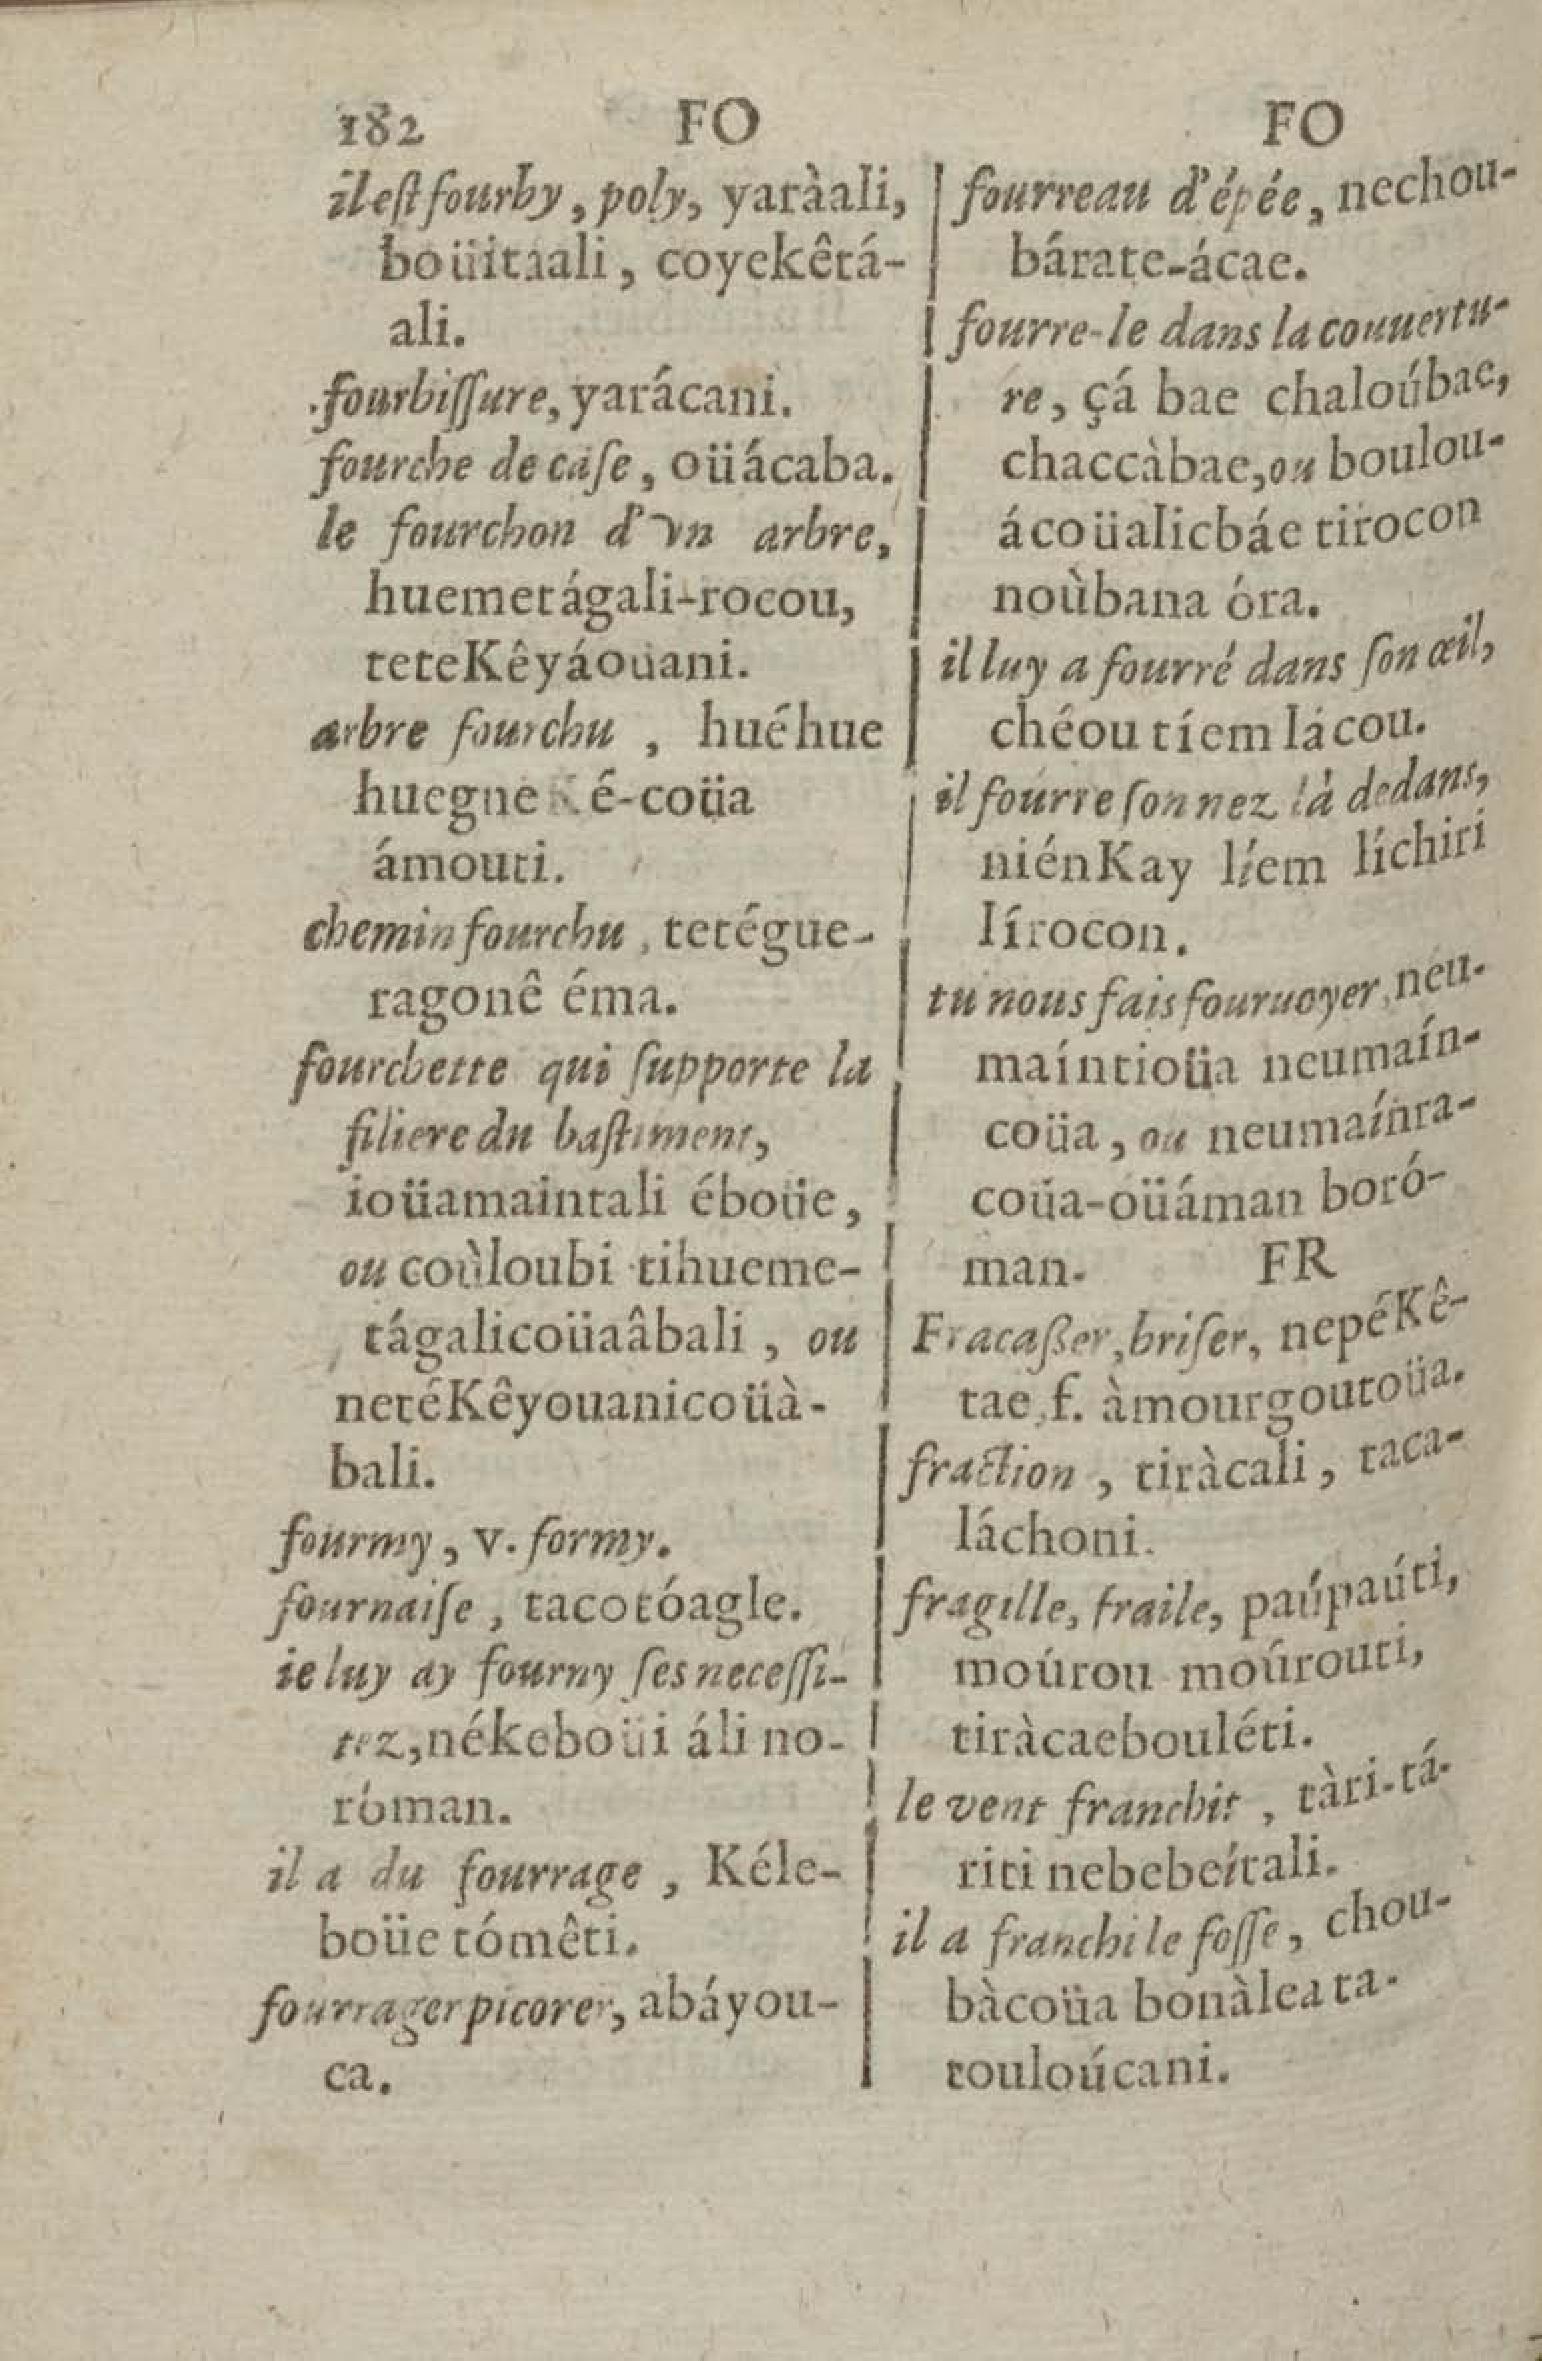 182 FO FO
il eſt fourby, poly, yaràali,
boüitaali, coyekêtá-
ali.
fourbiſſure, yarácani.
fourche de caſe, oüácaba.
le fourchon d'vn arbre,
huemetágali-rocou,
teteKêyáoüani.
arbre fourchu, huéhue
huegneKé-coüa
ámouti.
chemin fourchu, tetégue-
ragonê éma.
fourchette qui ſupporte la
filiere du baſtiment,
ioüamaintali éboüe,
ou coùloubi tihueme-
tágalicoüaâbali, ou
netéKêyouanicoüà-
bali.
fourmy, v. formy.
fournaiſe, tacotóagle.
ie luy ay fourny ſes neceſſi-
tez, nékeboüi áli no-
róman.
il a du fourrage, Kéle-
boüe tómêti.
fourrager picorer, abáyou-
ca.
fourreau d'épée, nechou-
bárate-ácae.
fourre-le dans la couuertu-
re, çá bae chaloúbae,
chaccàbae, ou boulou-
ácoüalicbáe tirocon
noùbana óra.
il luy a fourré dans ſon œil,
chéou tíem lácou.
il fourre ſon nez là dedans,
niénKay líem líchiri
lírocon.
tu nous fais fouruoyer, neu-
maíntioüa neumaín-
coüa, ou neumaínra-
coüa-oüáman boró-
man.
FR
Fracaßer, briſer, nepéKê-
tae, f. àmourgoutoüa.
fraction, tiràcali, taca-
láchoni.
fragille, fraile, paúpaúti,
moúrou moúrouti,
tiràcaebouléti.
le vent franchit, tàri-tá-
riti nebebeítali.
il a franchi le foſſe, chou-
bàcoüa bonàlea ta-
touloúcani.